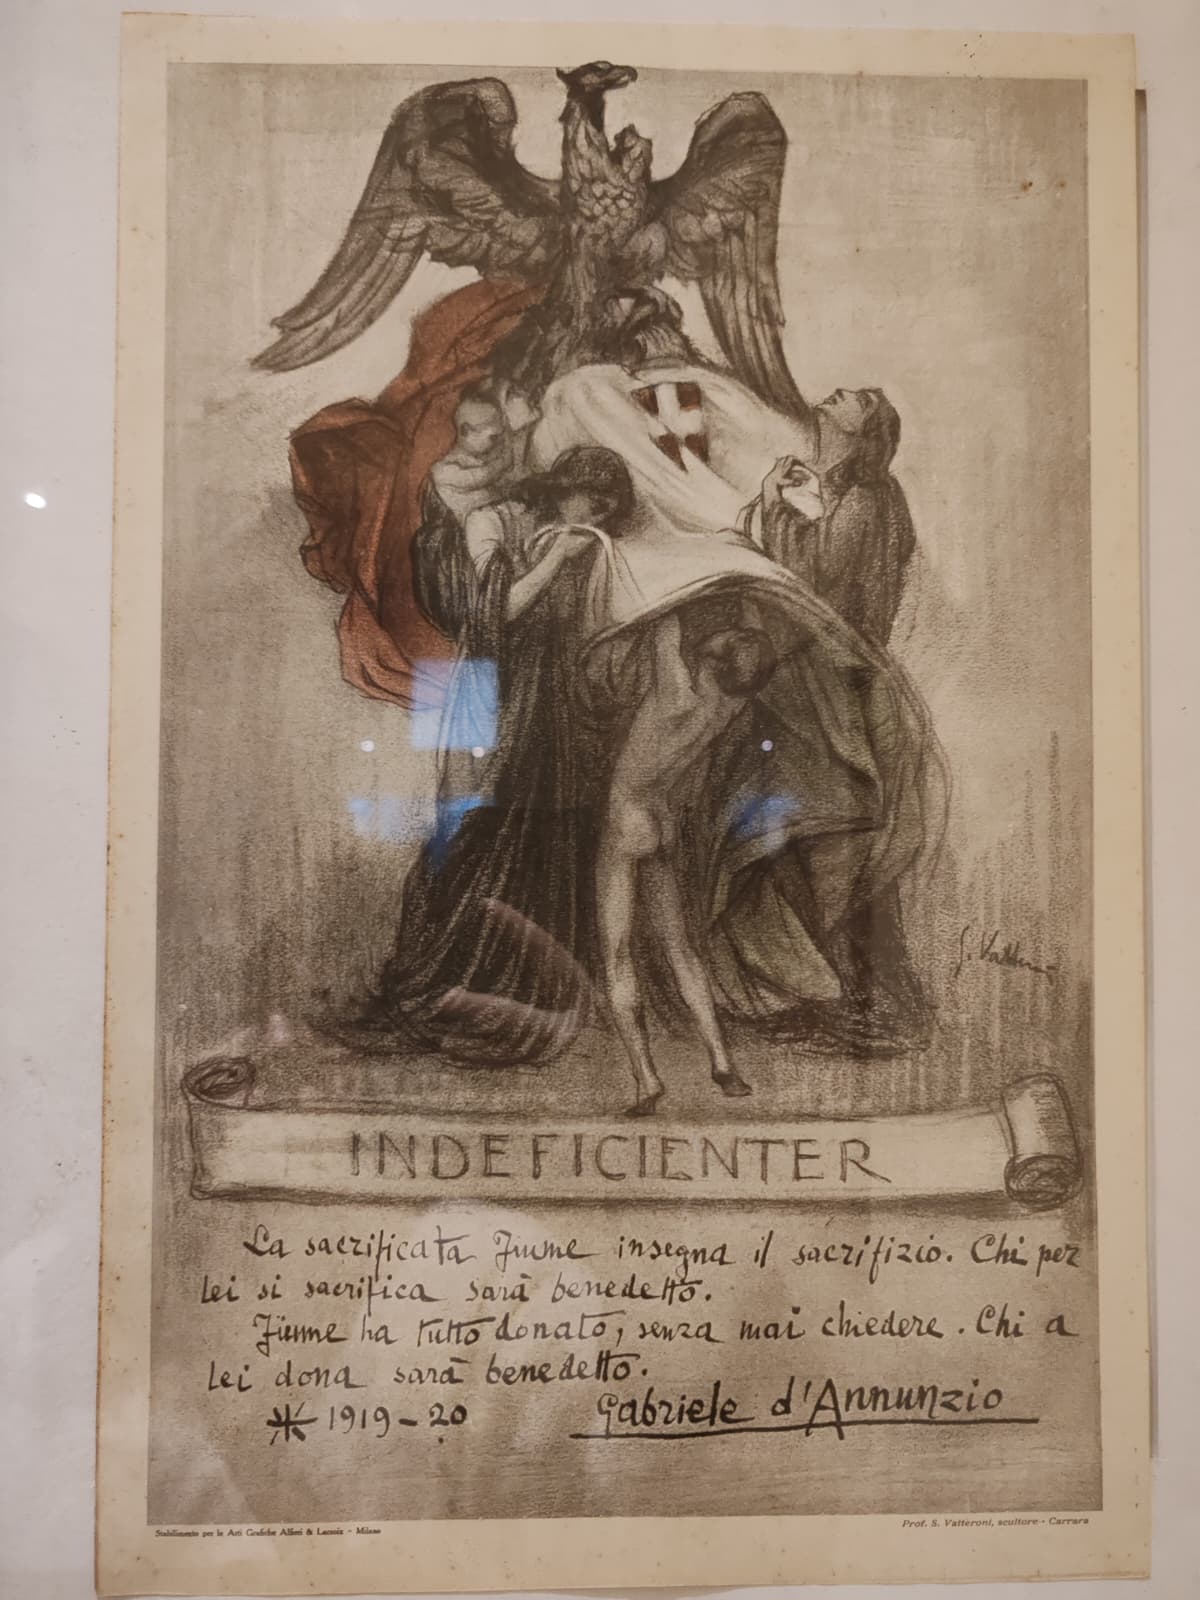 S. Vatteroni
INDEFICIENTER
La sacrificata Fiume insegna il sacrifizio. Chi per
lei si sacrifica sarà benedetto.
Fiume ha tutto donato, senza mai chiedere. Chi a
lei dona sarà benedetto.
1919-20 Gabriele d'Annunzio
Stabilimento per le Arti Grafiche Alfieri & Lacroix - Milano
Prof. S. Vatteroni, scultore - Carrara